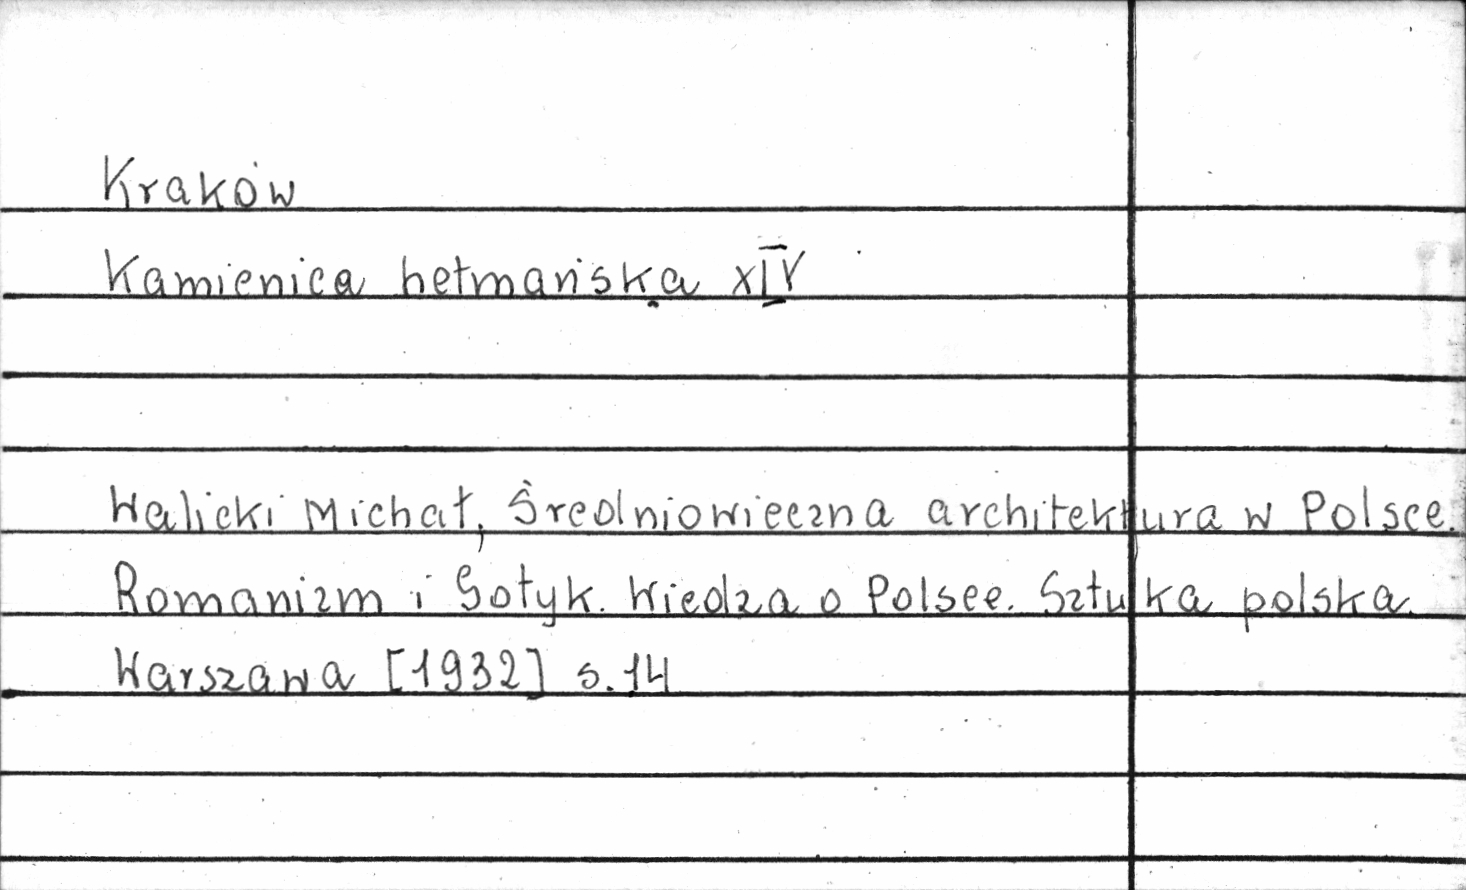 Kraków
Kamienica hetmańska XIV
Walicki Michał, Średniowieczna architektura w Polsce.
Romanizm i Gotyk. Wiedza o Polsce. Sztuka polska.
Warszawa [1932] s.14